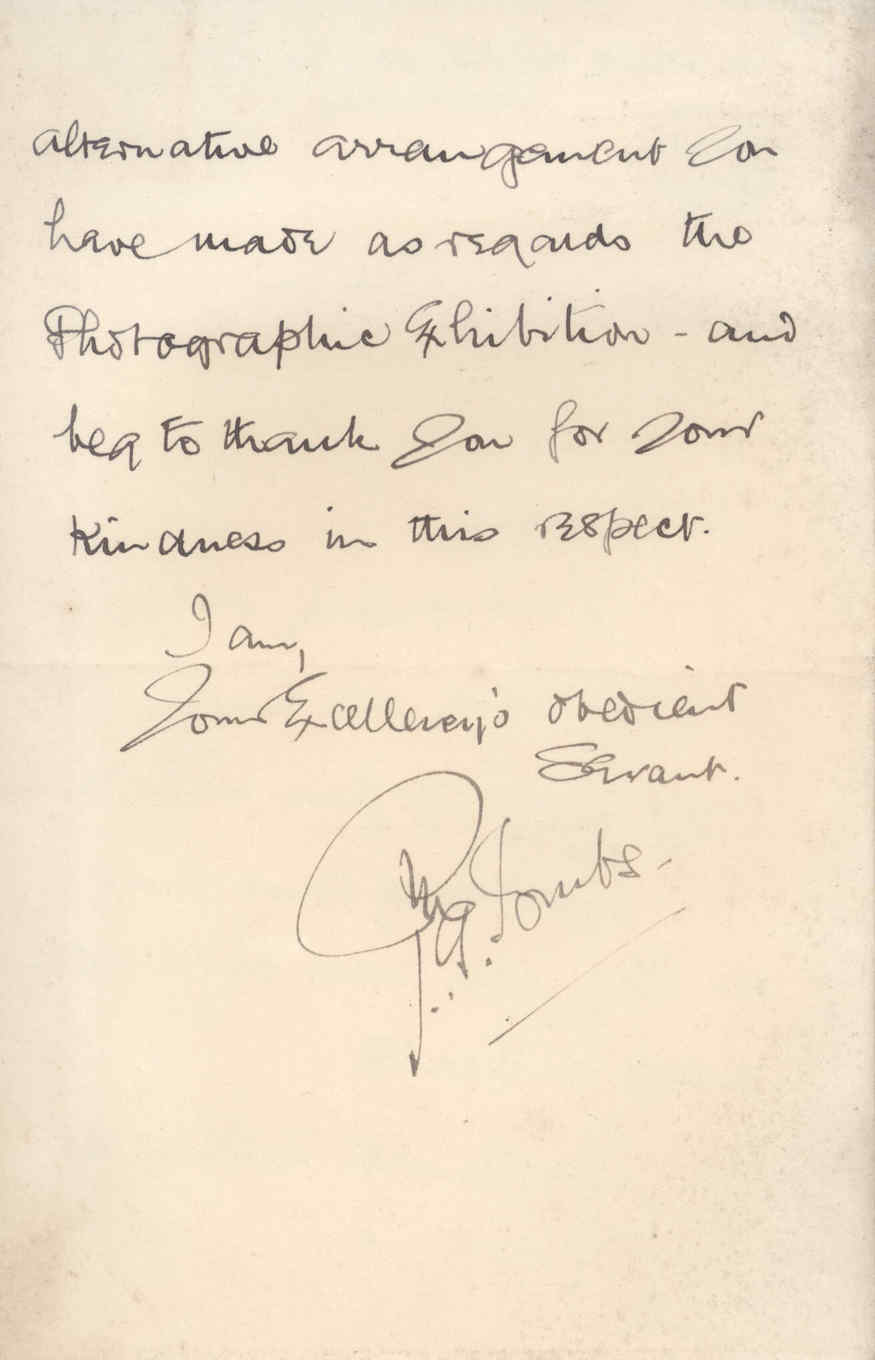 alternative arrangement you
have made as regards the
Photographic Exhibition - and
beg to thank you for your
kindness in this respect.
I am,
Your Excellency's obedient
Servant.
Tombs -